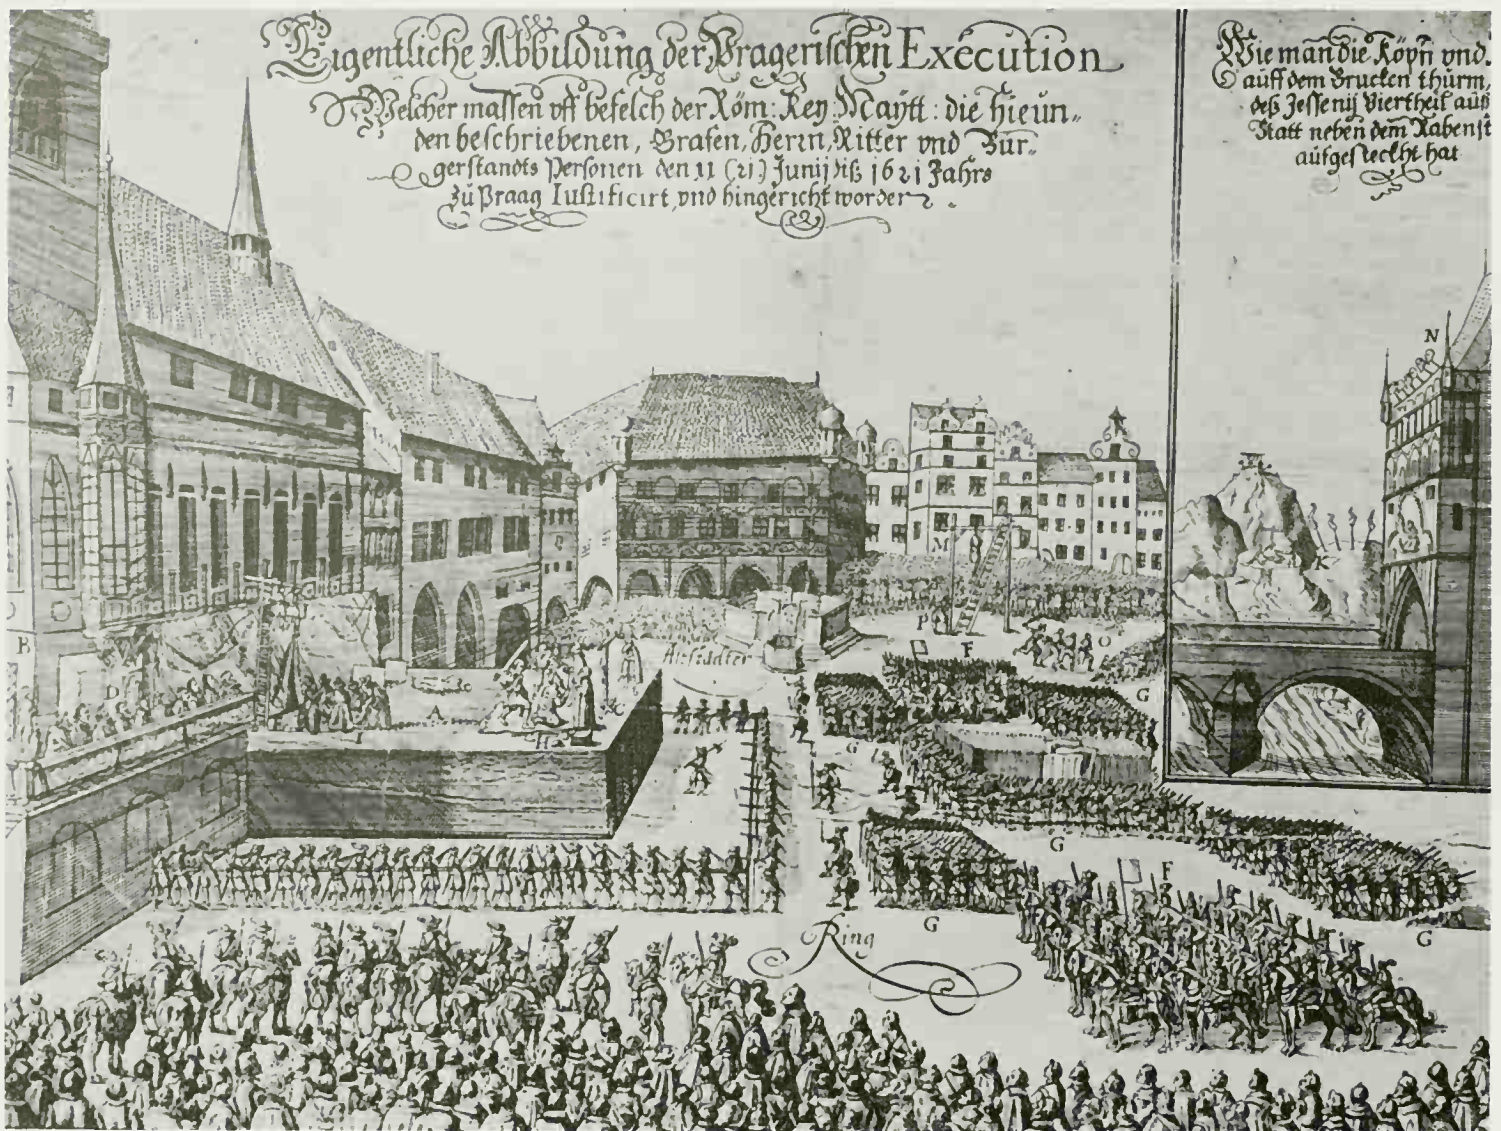 Eigentliche Abbildung der Pragerischen Execution
Welcher massen vff befelch der Röm: Key: Maytt: die hieun„
den beschriebenen, Grafen, Herrn, Ritter vnd Bur„
gerstandts Personen den 11 (21) Junij diß 1621 Jahrs
zu Praag Iustificirt, vnd hingericht worden
Wie man die Köpff vnd.
auff dem Brucken thurm,
deß Jessenij Viertheil auß
Statt neben dem Rabenst
aufgesteckht hat
N
K
M
B
P
O
F
Altstädter
D
A
G
H
I
G
G
F
G
G
Ring